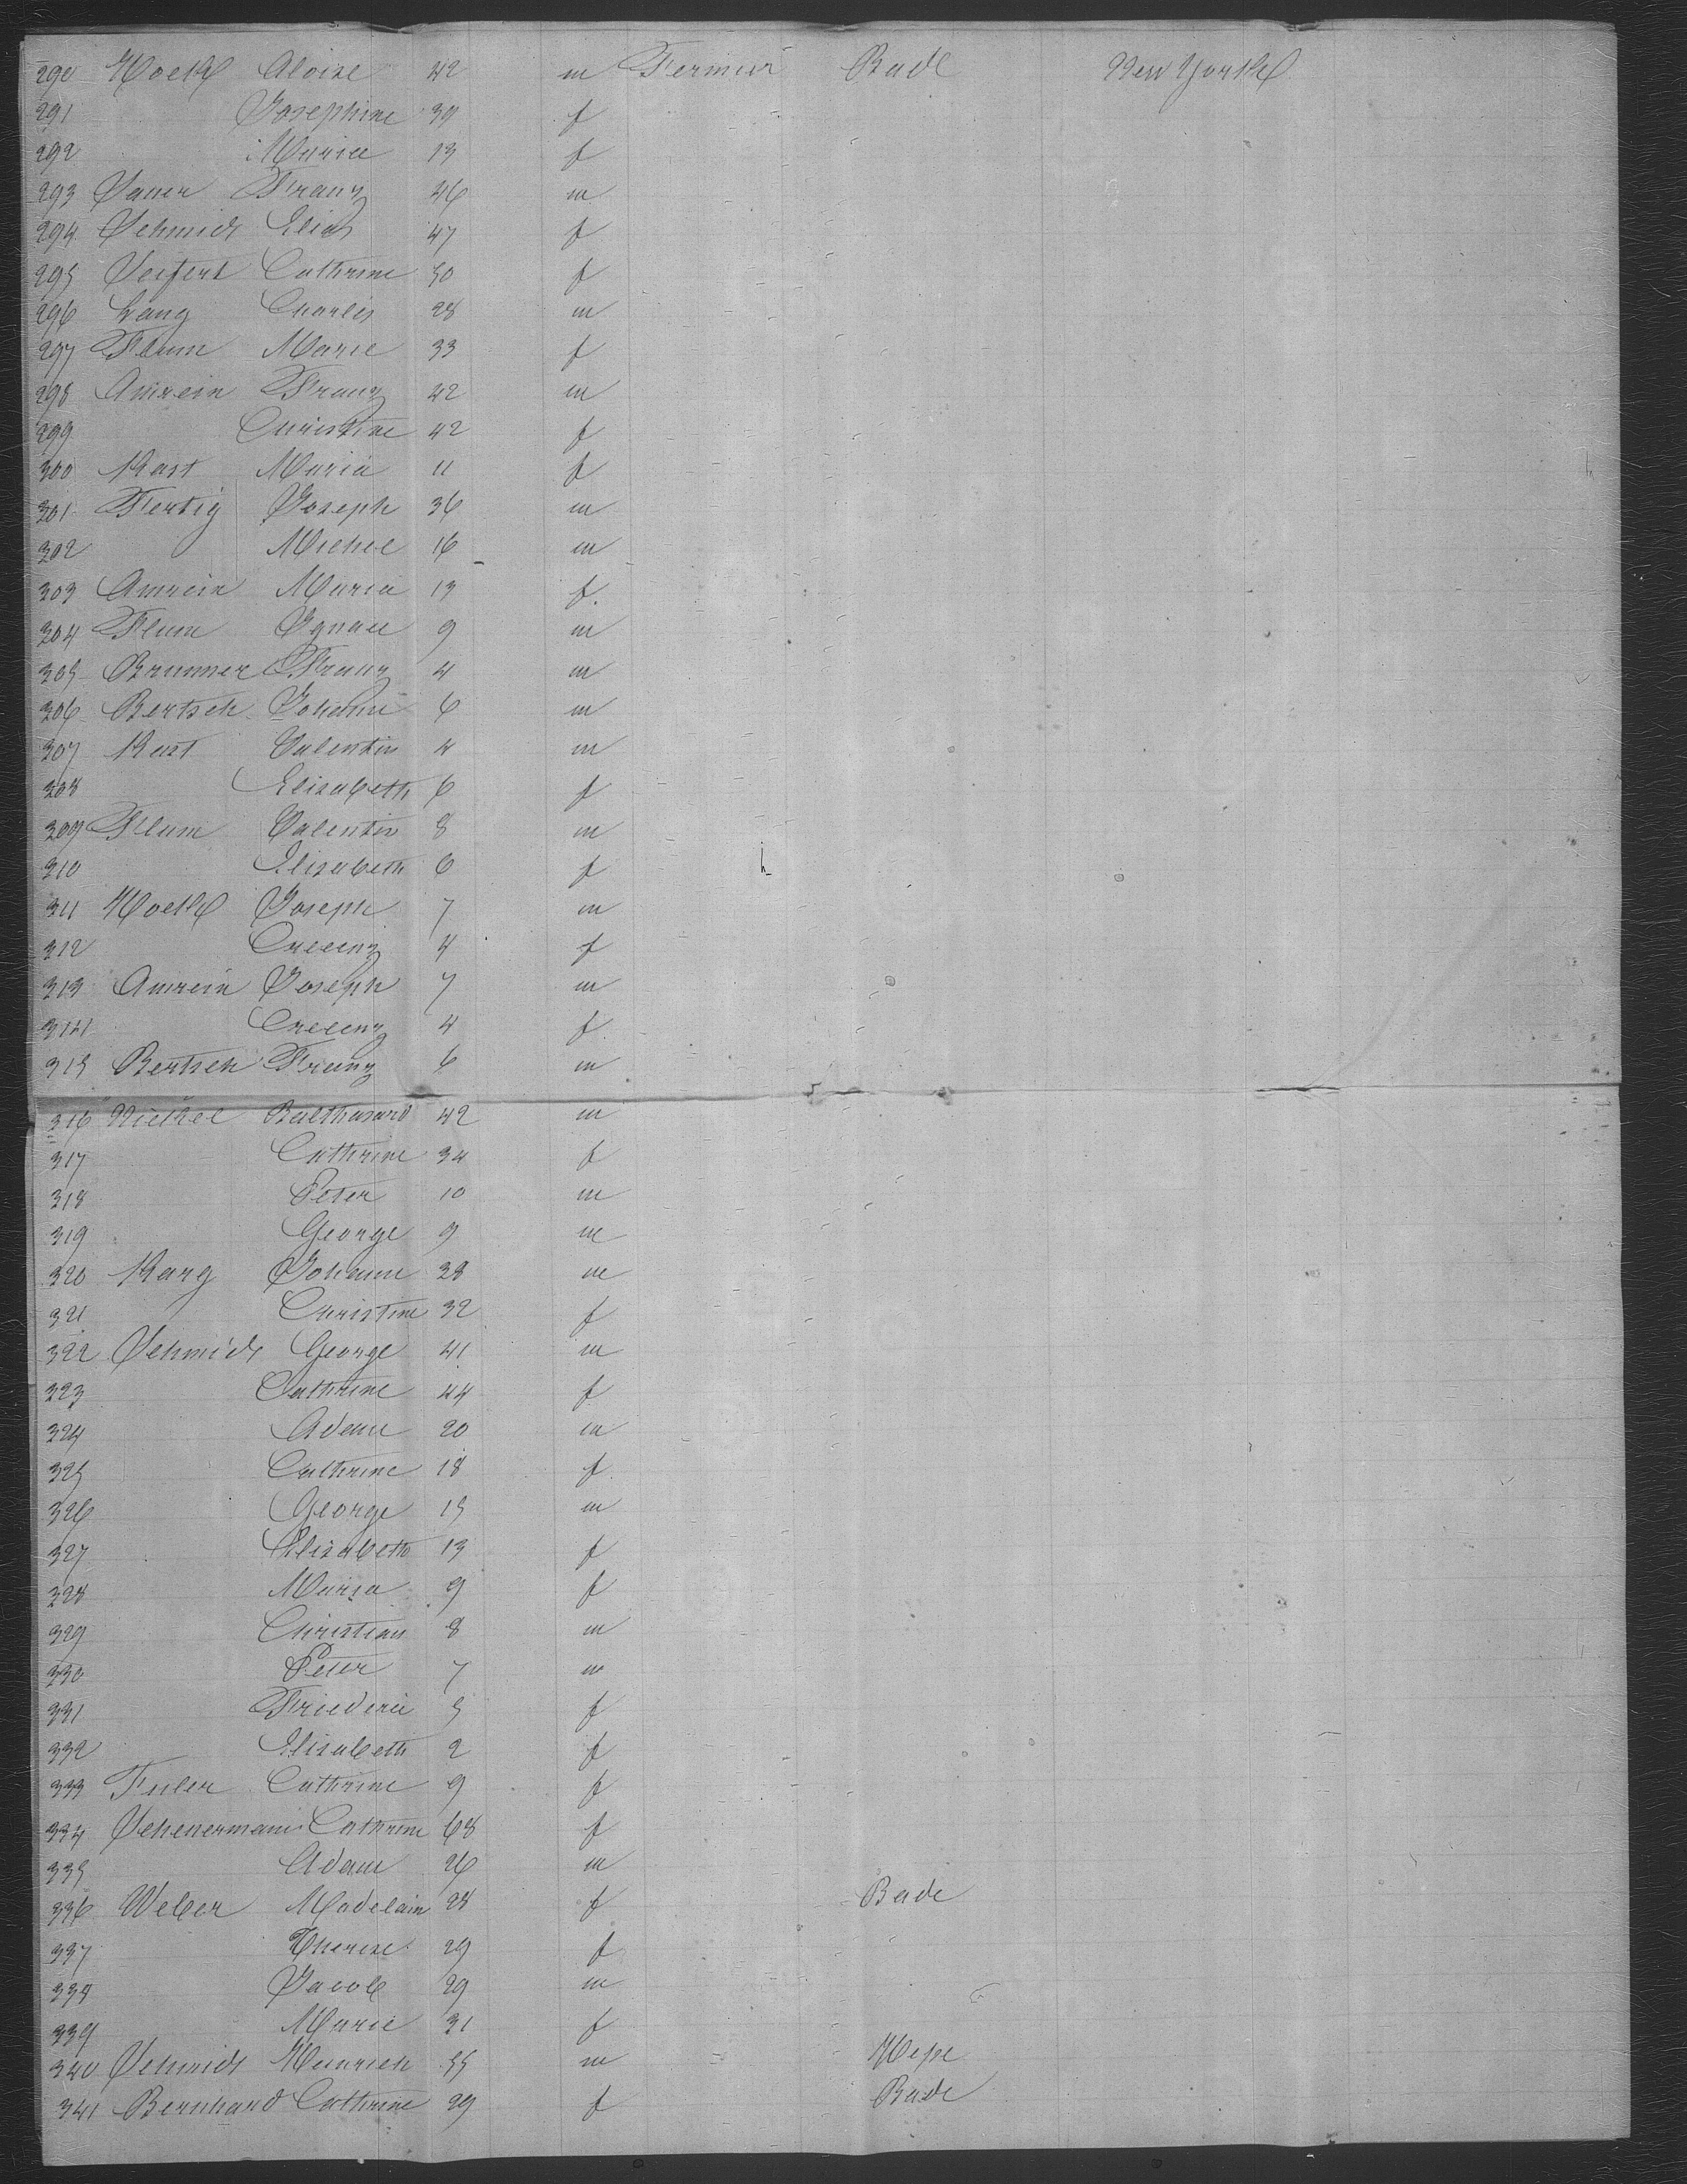 290 Hoelk Aloise 42 m Fermier Bade New York
291 Josephine 39 f
292 Maria 13 f
293 Sauer Franz 46 m
294 Schmidt Elis 47 f
295 Seifert Cathrine 50 f
296 Lang Charles 28 m
297 Flum Marie 33 f
298 Amrein Franz 42 m
299 Christine 42 f
300 Kast Maria 11 f
301 Fertig Joseph 36 m
302 Michel 16 m
303 Amrein Maria 13 f.
304 Flum Ignace 9 m
305 Brunner Franz 4 m
306 Bertsch Johann 6 m
307 Kast Valentin 4 m
308 Elisabeth 6 f
309 Flum Valentin 8 m
310 Elisabeth 6 f
311 Hoelk Joseph 7 m
312 Crecenz 4 f
313 Amrein Joseph 7 m
314 Crecenz 4 f
315 Bertsch Franz 6 m
316 Balthasard 42 m
317 Cathrine 34 f
318 Peter 10 m
319 George 9 m
320 Karg Johann 38 m
321 Christine 32 f
322 Schmidt George 41 m
323 Cathrine 44 f
324 Adam 20 m
325 Cathrine 18 f
326 George 15 m
327 Elisabeth 13 f
328 Maria 9 f
329 Christian 8 m
330 Peter 7 m
331 Friederic 5 f
332 Elisabeth 2 f
333 Cathrine 9 f
334 Scheuermann Cathrine 68 f
335 Adam 26 m
336 Weber Madelain 28 f Bade
337 Therese 29 f
338 Jacob 29 m
339 Marie 31 f
340 Schmidt Heinrich 55 m Hesse
341 Bernhard Cathrine 29 f Bade